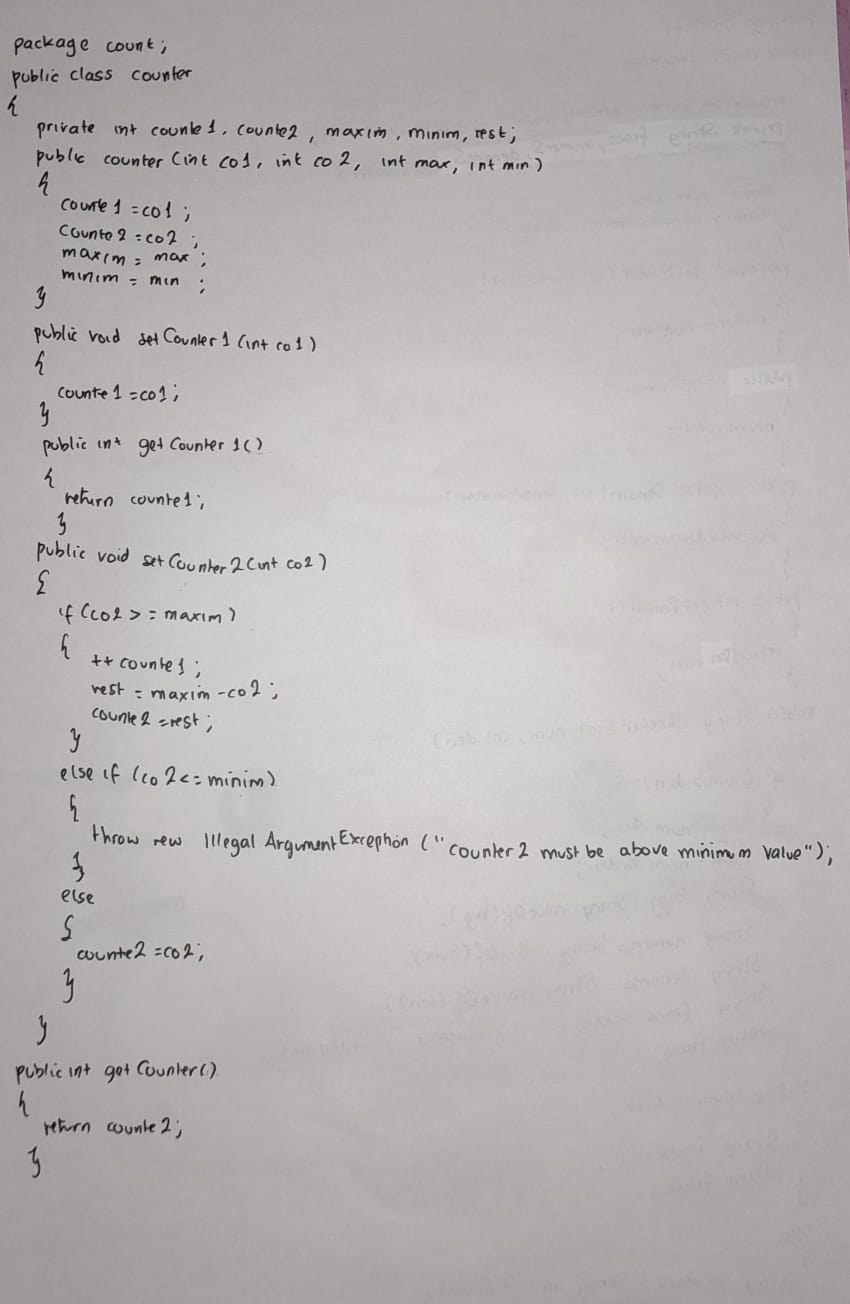 package count;
public class counter
{
private int counte1, counte2, maxim, minim, rest;
public counter (int co1, int co2, int max, int min)
{
counte1 = co1;
counte2 = co2;
maxim = max;
minim = min;
}
public void setCounter1 (int co1)
{
counte1 = co1;
}
public int getCounter1()
{
return counte1;
}
public void setCounter2 (int co2)
{
if (co2 >= maxim)
{
++counte1;
rest = maxim - co2;
counte2 = rest;
}
else if (co2 <= minim)
{
throw new IllegalArgumentException ("counter2 must be above minimum value");
}
else
{
counte2 = co2;
}
}
public int getCounter()
{
return counte2;
}